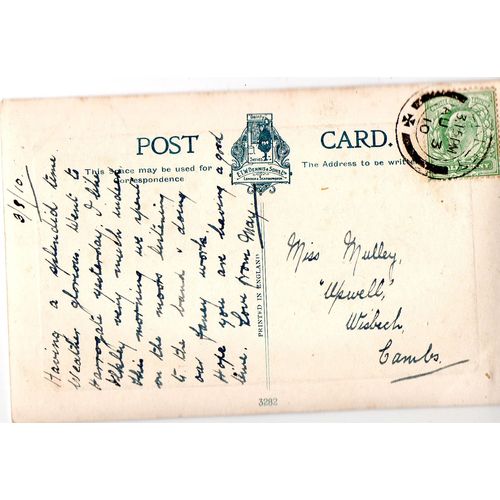 POST CARD.
This space may be used for
correspondence
The Address to be written
E.T.W. DENNIS & SONS Ltd
LONDON & SCARBOROUGH
PRINTED IN ENGLAND
3/8/10.
Having a splendid time
Weather glorious. Went to
Harrogate yesterday, I like
Ilkley very much indeed
this morning we spent
on the moors listening
to the band & doing
our fancy work.
Hope you are having a good
time. Love from May
Miss Mulley,
"Upwell",
Wisbech,
Cambs.
3.15 PM
AU 3
10
3282